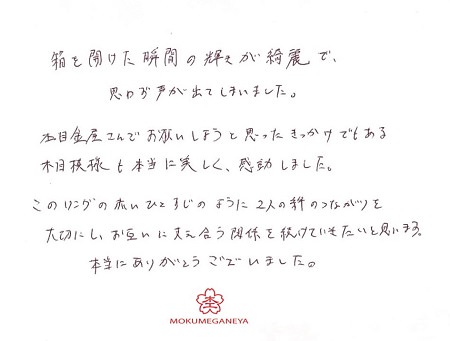 箱を開けた瞬間の輝きが綺麗で、
思わず声が出てしまいました。
杢目金屋さんでお願いしようと思ったきっかけでもある
木目模様も本当に美しく、感動しました。
このリングの赤いひとすじのように2人の絆のつながりを
大切にし、お互いに支え合う関係を続けていきたいと思います。
本当にありがとうございました。
杢
MOKUMEGANEYA